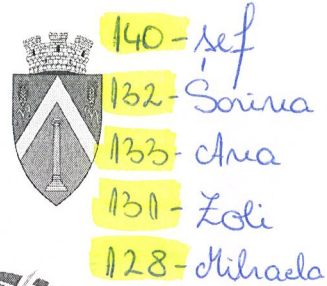 140 - șef
132 - Sorina
133 - Ana
131 - Zoli
128 - Mihaela